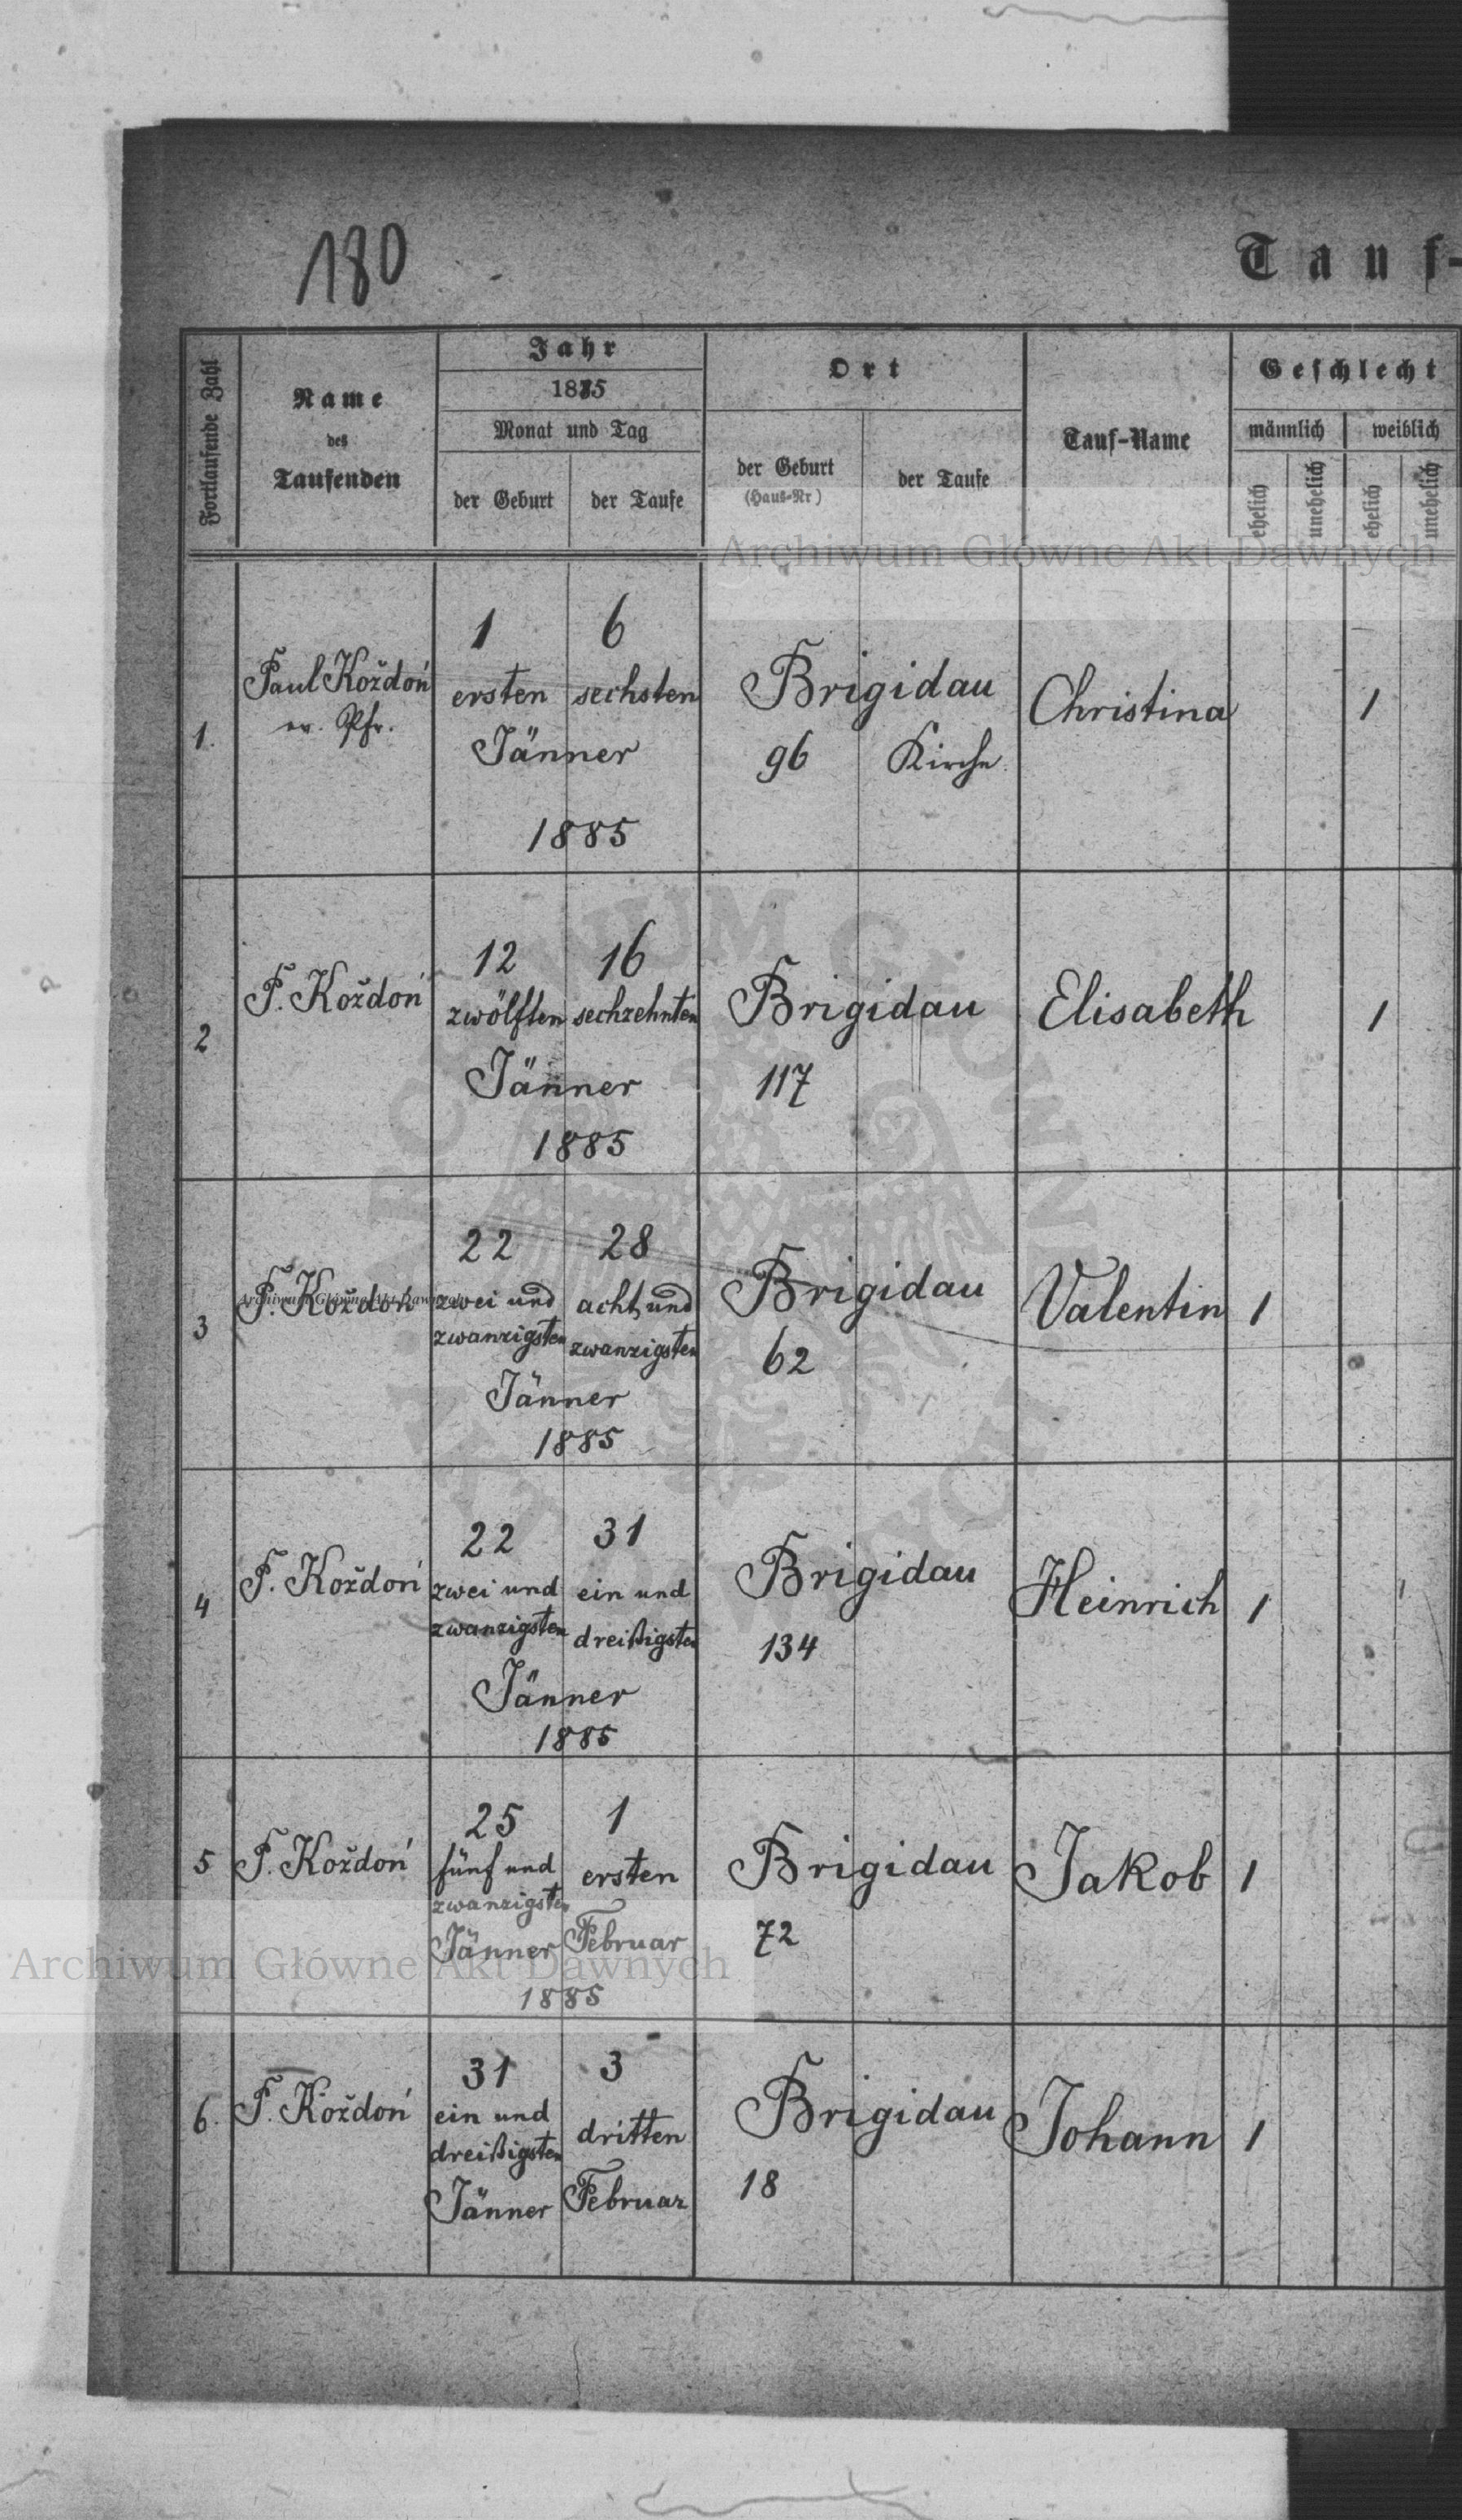 180
Tauf-
Fortlaufende Zahl
Name
des
Taufenden
Jahr
1885
Monat und Tag
der Geburt
der Taufe
Ort
der Geburt
(Haus-Nr)
der Taufe
Tauf-Name
Geschlecht
männlich
weiblich
ehelich
unehelich
ehelich
unehelich
Archiwum Główne Akt Dawnych
1.
Paul Kożdoń
ev. Pfr.
1
6
ersten
sechsten
Jänner
1885
Brigidau
96
Kirche
Christina
1
2
P. Kożdoń
12
16
zwölften
sechzehnten
Jänner
1885
Brigidau
117
"
Elisabeth
1
3
P. Kożdoń
22
28
zwei und
zwanzigsten
acht und
zwanzigsten
Jänner
1885
Brigidau
62
Valentin
1
Archiwum Główne Akt Dawnych
4
P. Kożdoń
22
31
zwei und
zwanzigsten
ein und
dreißigsten
Jänner
1885
Brigidau
134
Heinrich
1
5
P. Kożdoń
25
1
fünf und
zwanzigsten
ersten
Jänner
Februar
1885
Brigidau
72
Jakob
1
Archiwum Główne Akt Dawnych
6.
P. Kożdoń
31
3
ein und
dreißigsten
dritten
Jänner
Februar
Brigidau
18
Johann
1